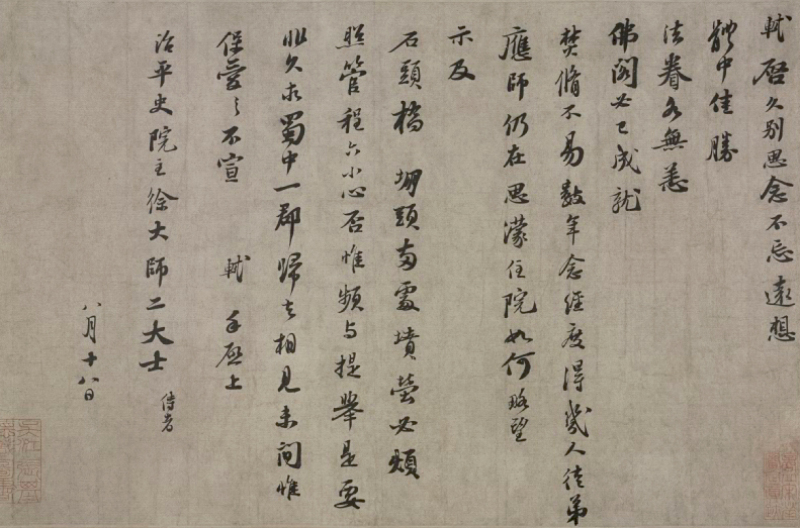 軾啓久别思念不忘遠想
體中佳勝
法眷各無恙
佛閣必已成就
焚脩不易數年念經度得幾人徒弟
應師仍在思濛住院如何略望
示及
石頭橋堋頭兩處墳塋必煩
照管程六小心否惟頻與提舉是要
非久求蜀中一郡歸去相見未間惟
保愛之不宣 軾 手啓上
治平史院主徐大師二大士 侍者
八月十八日